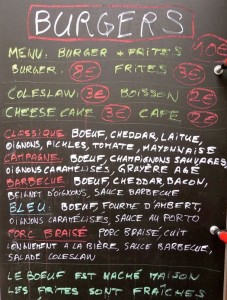 BURGERS
MENU: BURGER + FRITES 10€
BURGER: 8€ FRITES 3€
COLESLAW 3€ BOISSON 2€
CHEESECAKE 3€ CAFE 2€
CLASSIQUE: BOEUF, CHEDDAR, LAITUE,
OIGNONS, PICKLES, TOMATE, MAYONNAISE
CAMPAGNE: BOEUF, CHAMPIGNONS SAUVAGES,
OIGNONS CARAMÉLISÉS, GRUYÈRE AGÉ
BARBECUE: BOEUF, CHEDDAR, BACON,
BEIGNET D'OIGNONS, SAUCE BARBECUE
BLEU: BOEUF, FOURME D'AMBERT,
OIGNONS CARAMÉLISÉS, SAUCE AU PORTO
PORC BRAISÉ: PORC BRAISÉ, CUIT
LONGUEMENT A LA BIÈRE, SAUCE BARBECUE,
SALADE COLESLAW
LE BOEUF EST HACHÉ MAISON
LES FRITES SONT FRAÎCHES